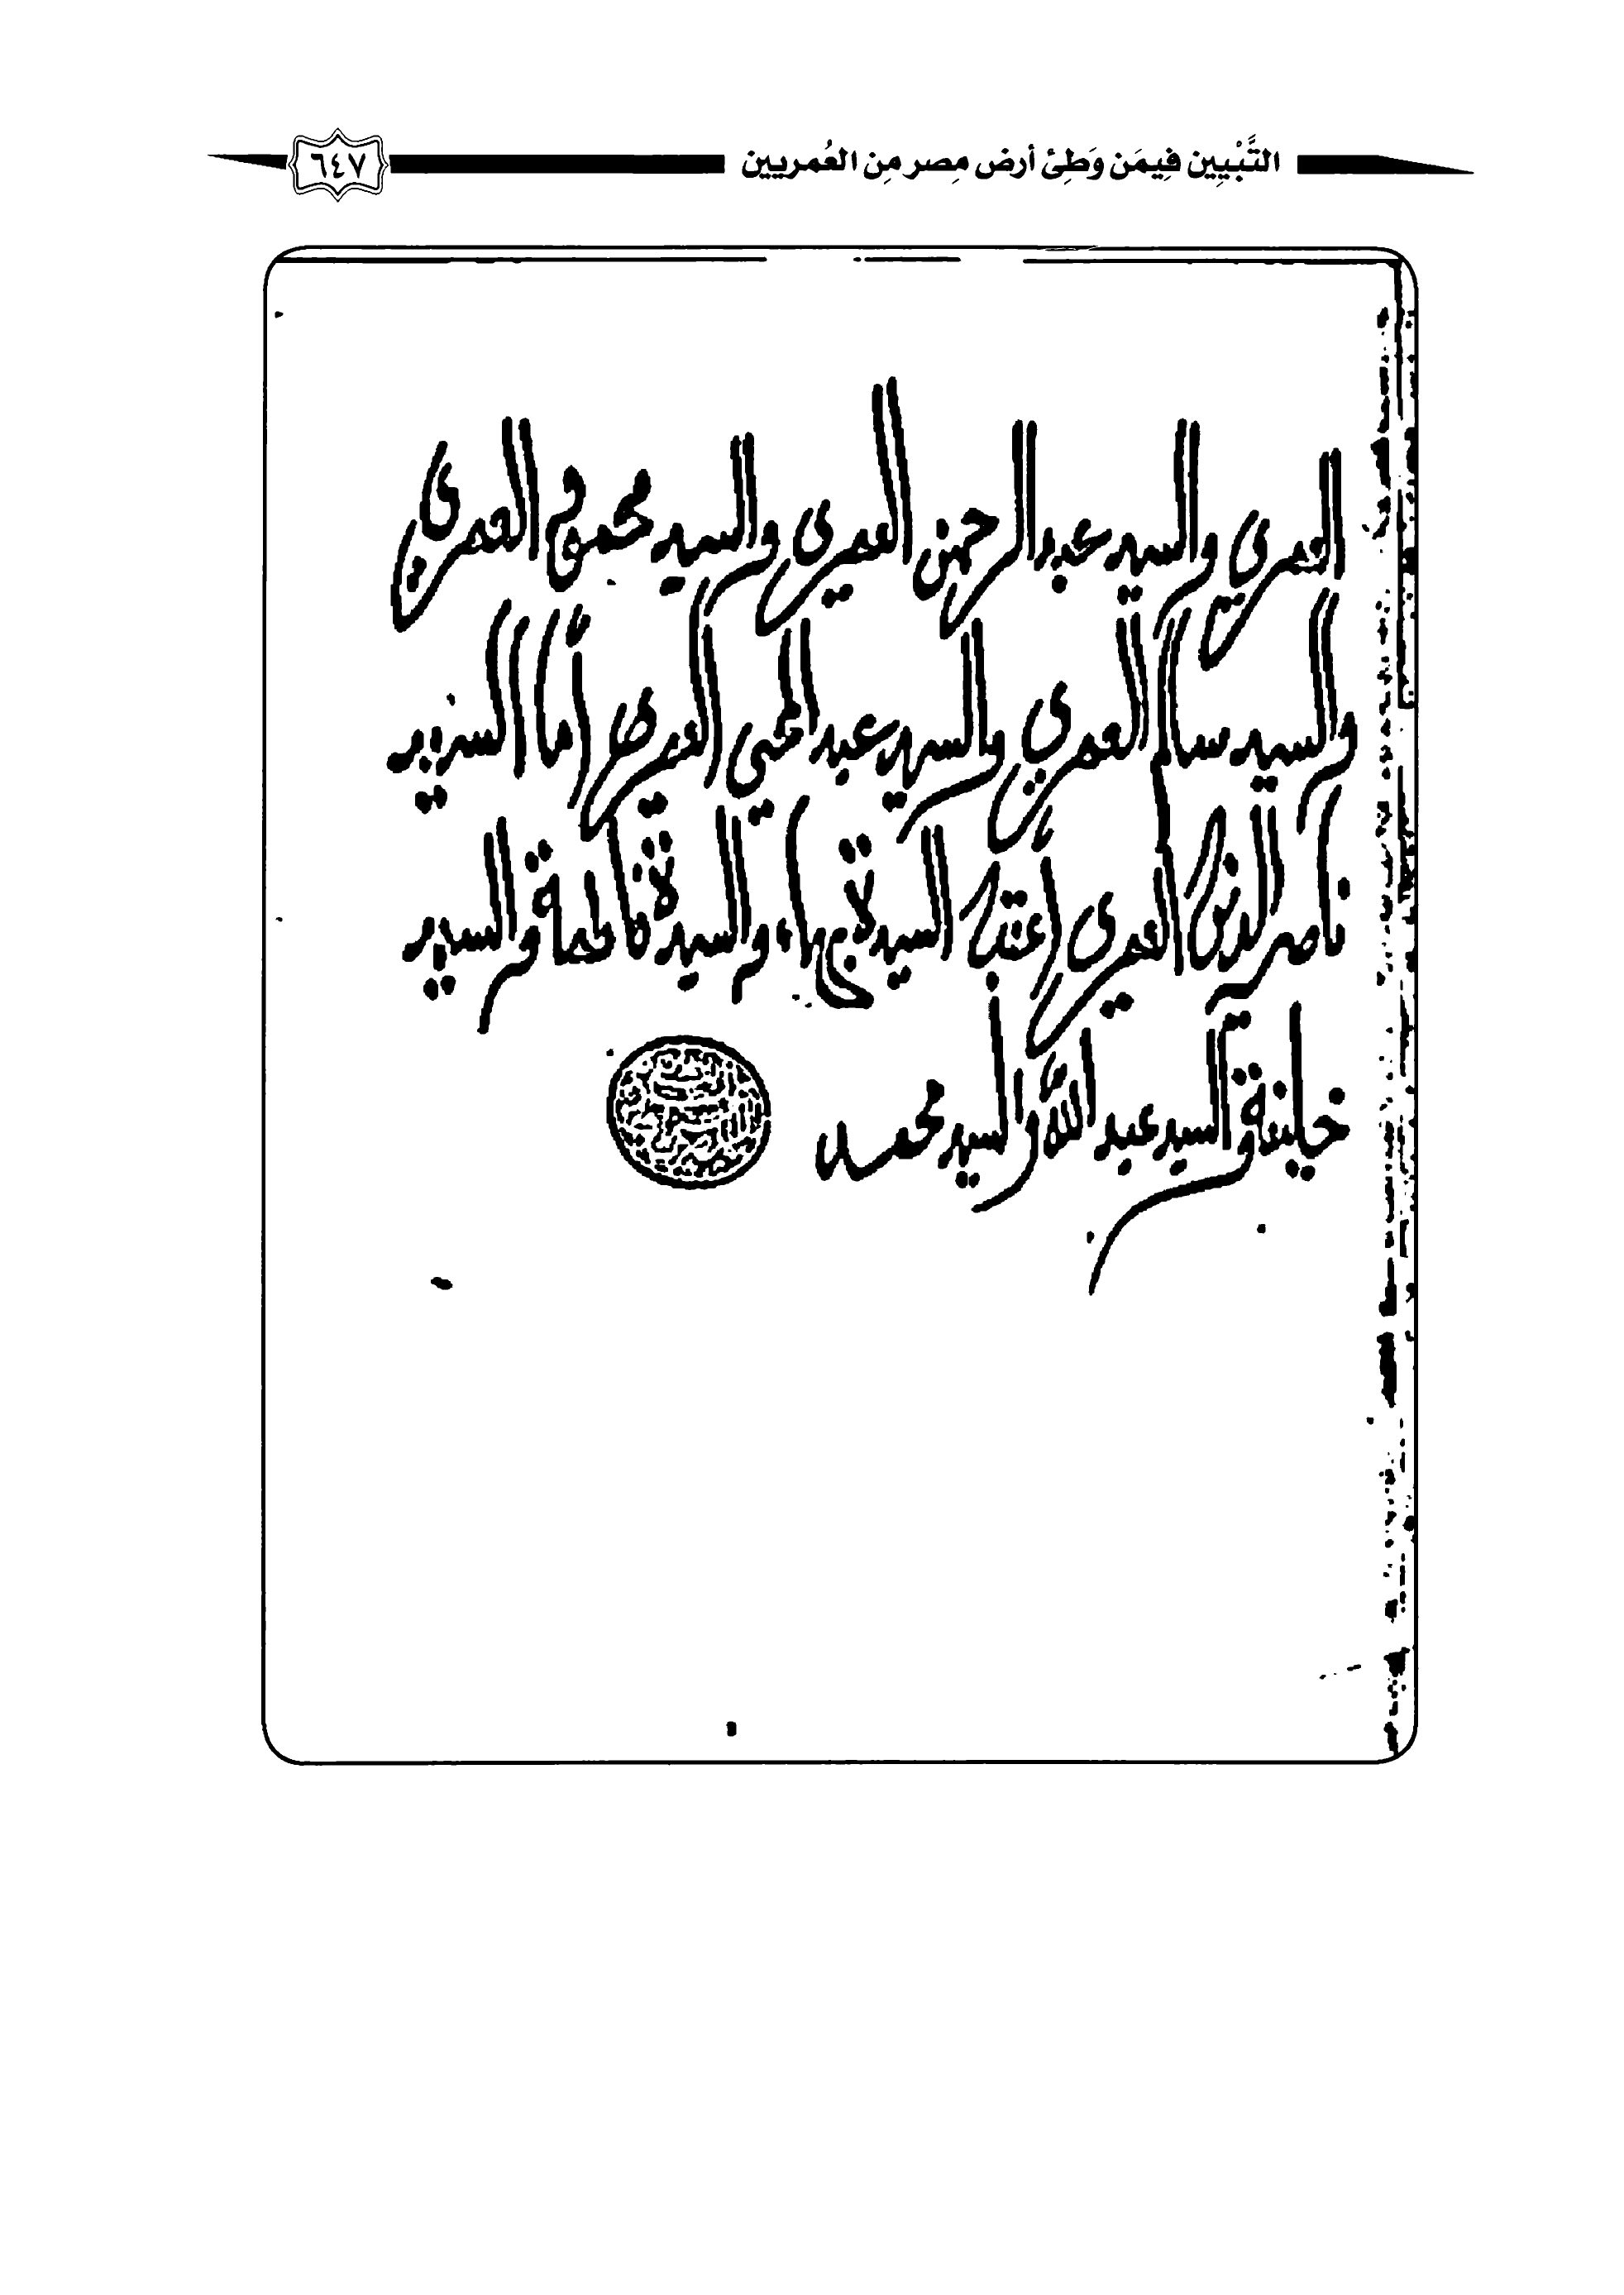 التَّبْيِين فِيمَن وَطِئ أرض مِصر مِن العُمريين
٦٤٧
العمري والسيد عبد الرحمن العمري والسيد محمد العمري
والسيد سالم العمري والسيد عبد الحي العمري أما السيد
ناصر الدين العمري أعقب السيدة بهاء والسيدة فاطمة والسيد
خليفة والسيد عبد الله والسيد محمد